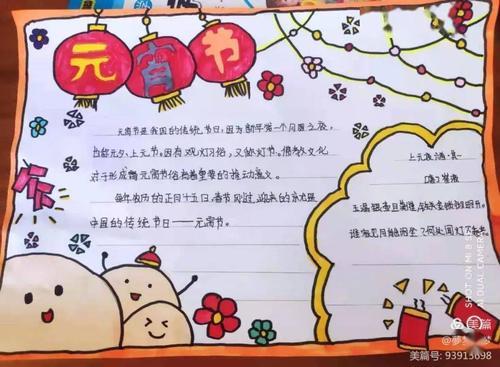 元宵节
元宵节是我国的传统节日,因为新年第一个月圆之夜,
也称元夕、上元节。因有观灯习俗,又称灯节。佛教文化
对于形成元宵节俗有着重要的推动意义。
每年农历的正月十五日,春节刚过,迎来的
中国的传统节日——元宵节。
上元夜
唐 崔液
玉漏
谁家见月能闲坐?何处闻灯不
SHOT ON MI 8 SE
AI DUAL CAMERA
美篇
美篇号: 93915698